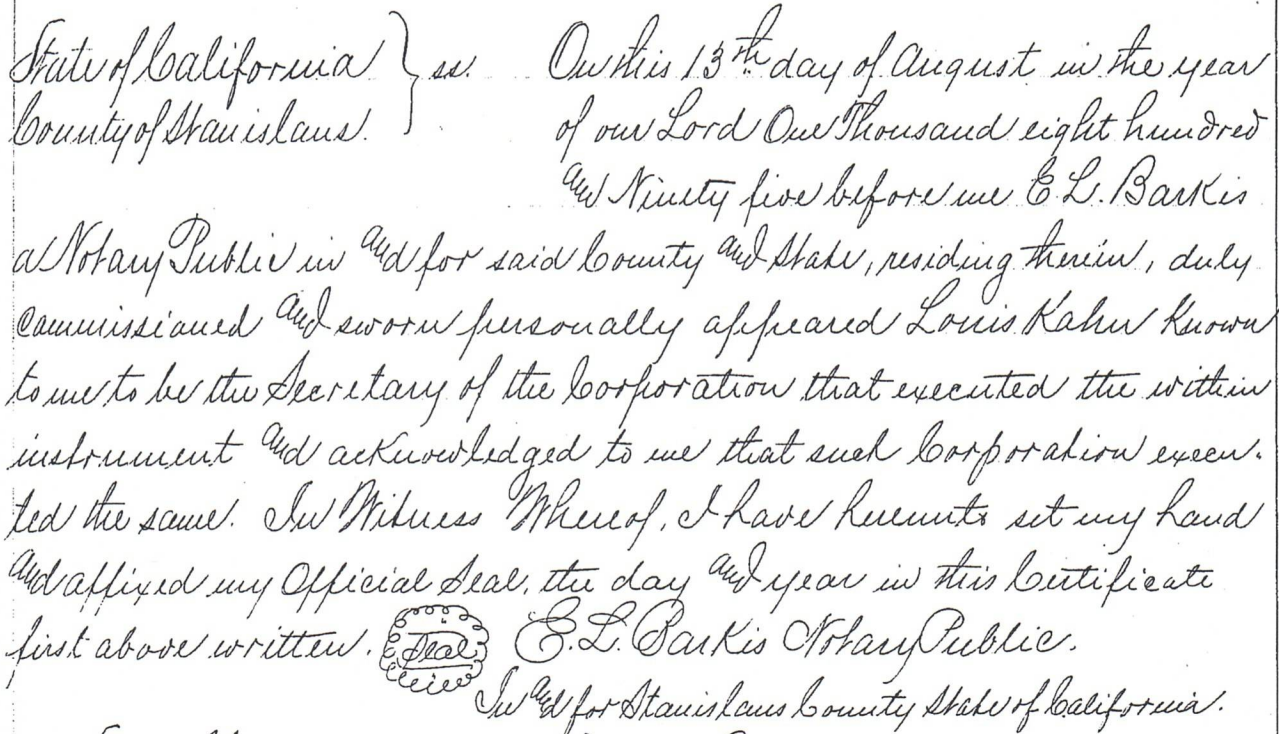 State of California } ss. On this 13th day of August in the year
County of Stanislaus. of our Lord One Thousand eight hundred
and Ninety five before me E L. Barkis
a Notary Public in and for said County and State, residing therein, duly
commissioned and sworn personally appeared Louis Kahn Known
to me to be the Secretary of the Corporation that executed the within
instrument and acknowledged to me that such Corporation execu-
ted the same. In Witness Whereof, I have hereunto set my hand
and affixed my Official Seal, the day and year in this Certificate
first above written. Seal E. L. Barkis Notary Public.
In and for Stanislaus County State of California.